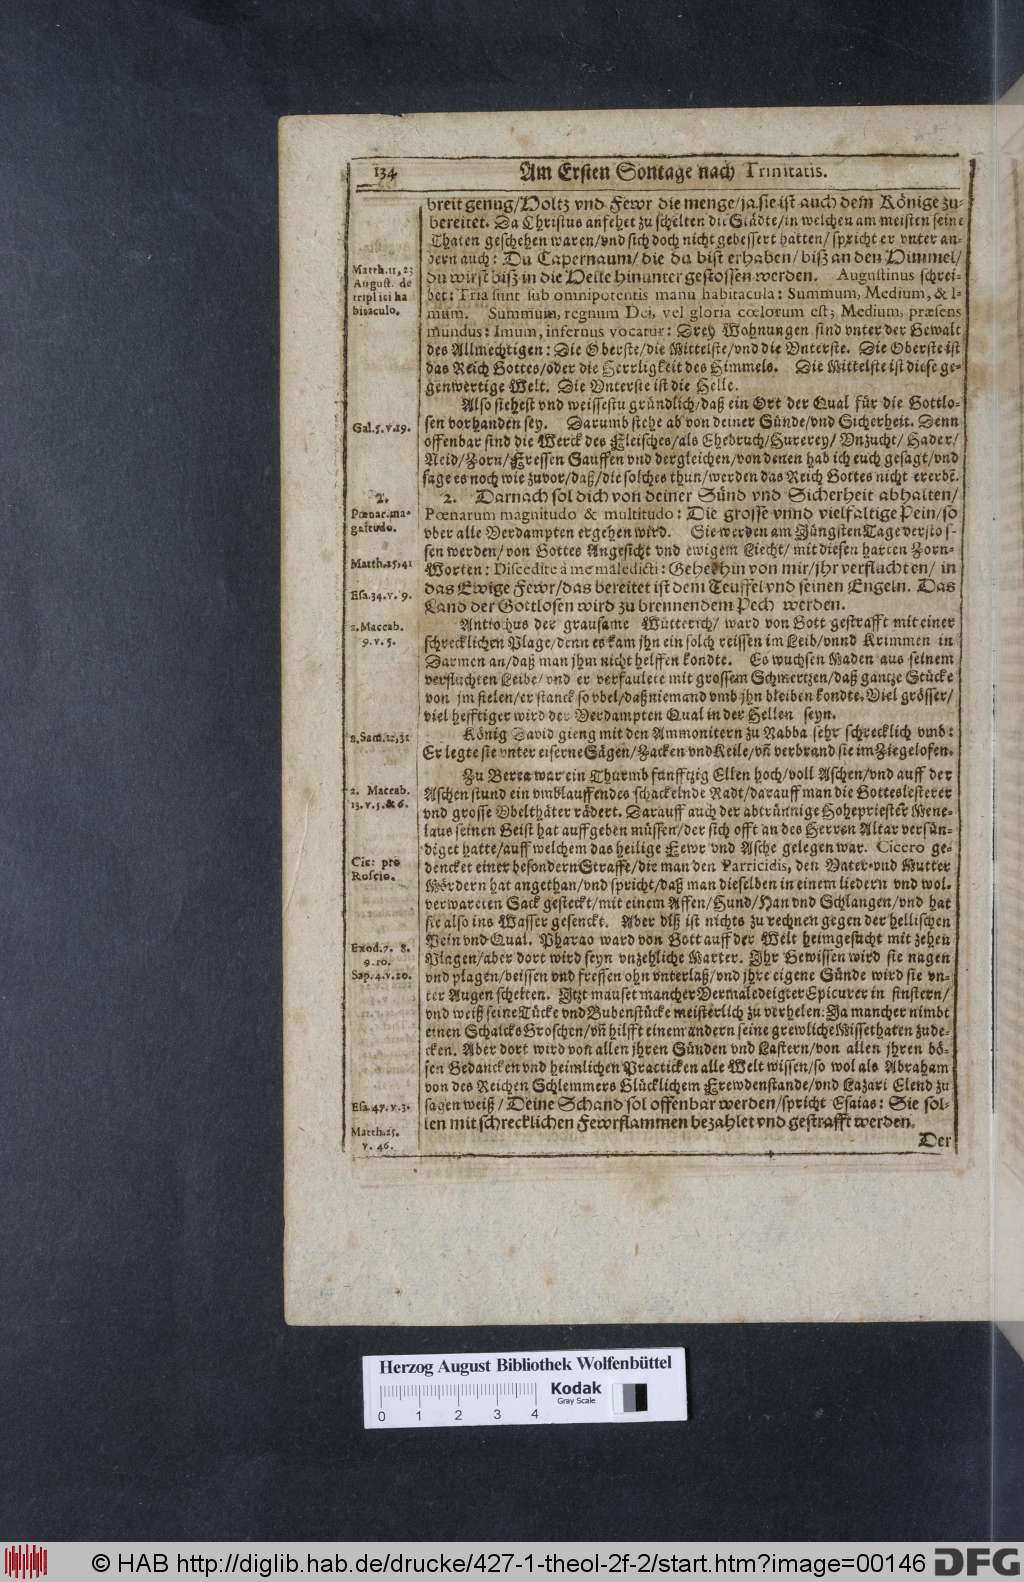 134 Am Ersten Sontage nach Trinitatis.
breit genug/Holtz vnd Fewr die menge/ja sie ist auch dem Könige zu-
bereitet. Da Christus anfehet zu schelten die Städte/in welchen am meisten seine
Thaten geschehen waren/vnd sich doch nicht gebessert hatten/spricht er vnter an-
dern auch: Du Capernaum/die du bist erhaben/biß an den Himmel/
Matth.11,23
du wirst biß in die Helle hinunter gestossen werden. Augustinus schrei-
August. de
bet: Tria sunt sub omnipotentis manu habitacula: Summum, Medium, & I-
triplici ha
mum. Summum, regnum Dei, vel gloria cœlorum est; Medium, præsens
bitaculo.
mundus: Imum, infernus vocatur: Drey Wohnungen sind vnter der Gewalt
des Allmechtigen: Die Oberste/die Mittelste/vnd die Vnterste. Die Oberste ist
das Reich Gottes/oder die Herrligkeit des Himmels. Die Mittelste ist diese ge-
genwertige Welt. Die Vnterste ist die Helle.
Also siehest vnd weissestu gründlich/daß ein Ort der Qual für die Gottlo-
Gal.5.v.19.
sen vorhanden sey. Darumb stehe ab von deiner Sünde/vnd Sicherheit. Denn
offenbar sind die Werck des Fleisches/als Ehebruch/Hurerey/Vnzucht/Hader/
Neid/Zorn/Fressen Sauffen vnd dergleichen/von denen hab ich euch gesagt/vnd
sage es noch wie zuvor/daß/die solches thun/werden das Reich Gottes nicht ererbē.
2.
2. Darnach sol dich von deiner Sünd vnd Sicherheit abhalten/
Pœnar.ma-
Pœnarum magnitudo & multitudo: Die grosse vnnd vielfaltige Pein/so
gnitudo.
vber alle Verdampten ergehen wird. Sie werden am Jüngsten Tage verstos-
sen werden/von Gottes Angesicht vnd ewigem Liecht/mit diesen harten Zorn-
Matth.25,41
Worten: Discedite à me maledicti: Gehet hin von mir/jhr verfluchten/in
das Ewige Fewr/das bereitet ist dem Teuffel vnd seinen Engeln. Das
Esa.34.v.9.
Land der Gottlosen wird zu brennendem Pech werden.
2.Maccab.
Antiochus der grausame Wütterich/ward von Gott gestrafft mit einer
9.v.5.
schrecklichen Plage/denn es kam jhn ein solch reissen im Leib/vnnd Krimmen in
Darmen an/daß man jhm nicht helffen kondte. Es wuchsen Maden aus seinem
verfluchten Leibe/vnd er verfaulete mit grossem Schmertzen/daß gantze Stücke
von jm fielen/er stanck so vbel/daß niemand vmb jhn bleiben kondte. Viel grösser/
viel hefftiger wird der Verdampten Qual in der Hellen seyn.
2.Sam.12,31
König David gieng mit den Ammonitern zu Rabba sehr schrecklich vmb:
Er legte sie vnter eiserne Sägen/Zacken vnd Keile/vñ verbrand sie im Ziegelofen.
Zu Berea war ein Thurmb funfftzig Ellen hoch/voll Aschen/vnd auff der
2. Maccab.
Aschen stund ein vmblauffendes schackelnde Radt/darauff man die Gotteslesterer
13.v.5.& 6.
vnd grosse Vbelthäter rädert. Darauff auch der abtrünnige Hohepriester Mene-
laus seinen Geist hat auffgeben müssen/der sich offt an des Herren Altar versün-
diget hatte/auff welchem das heilige Fewr vnd Asche gelegen war. Cicero ge-
Cic: pro
dencket einer besondern Straffe/die man den Parricidis, den Vater-vnd Mutter
Roscio.
Mördern hat angethan/vnd spricht/daß man dieselben in einem liedern vnd wol-
verwareten Sack gesteckt/mit einem Affen/Hund/Han vnd Schlangen/vnd hat
sie also ins Wasser gesenckt. Aber diß ist nichts zu rechnen gegen der hellischen
Exod.7. 8.
Pein vnd Qual. Pharao ward von Gott auff der Welt heimgesucht mit zehen
9.10.
Plagen/aber dort wird seyn vnzehliche Marter. Jhr Gewissen wird sie nagen
Sap.4.v.20.
vnd plagen/beissen vnd fressen ohn vnterlaß/vnd jhre eigene Sünde wird sie vn-
ter Augen schelten. Jtzt mauset mancher Vermaledeigter Epicurer in finstern/
vnd weiß seine Tücke vnd Bubenstücke meisterlich zu verhelen: Ja mancher nimbt
einen Schalcks Groschen/vñ hilfft einem andern seine grewliche Missethaten zude-
cken. Aber dort wird von allen jhren Sünden vnd Lastern/von allen jhren bö-
sen Gedancken vnd heimlichen Practicken alle Welt wissen/so wol als Abraham
von des Reichen Schlemmers Glücklichem Frewdenstande/vnd Lazari Elend zu
Esa.47.v.3.
sagen weiß/Deine Schand sol offenbar werden/spricht Esaias: Sie sol-
Matth.25.
len mit schrecklichen Fewrflammen bezahlet vnd gestrafft werden.
v. 46.
Der
Herzog August Bibliothek Wolfenbüttel
Kodak
Gray Scale
0 1 2 3 4
© HAB http://diglib.hab.de/drucke/427-1-theol-2f-2/start.htm?image=00146 DFG